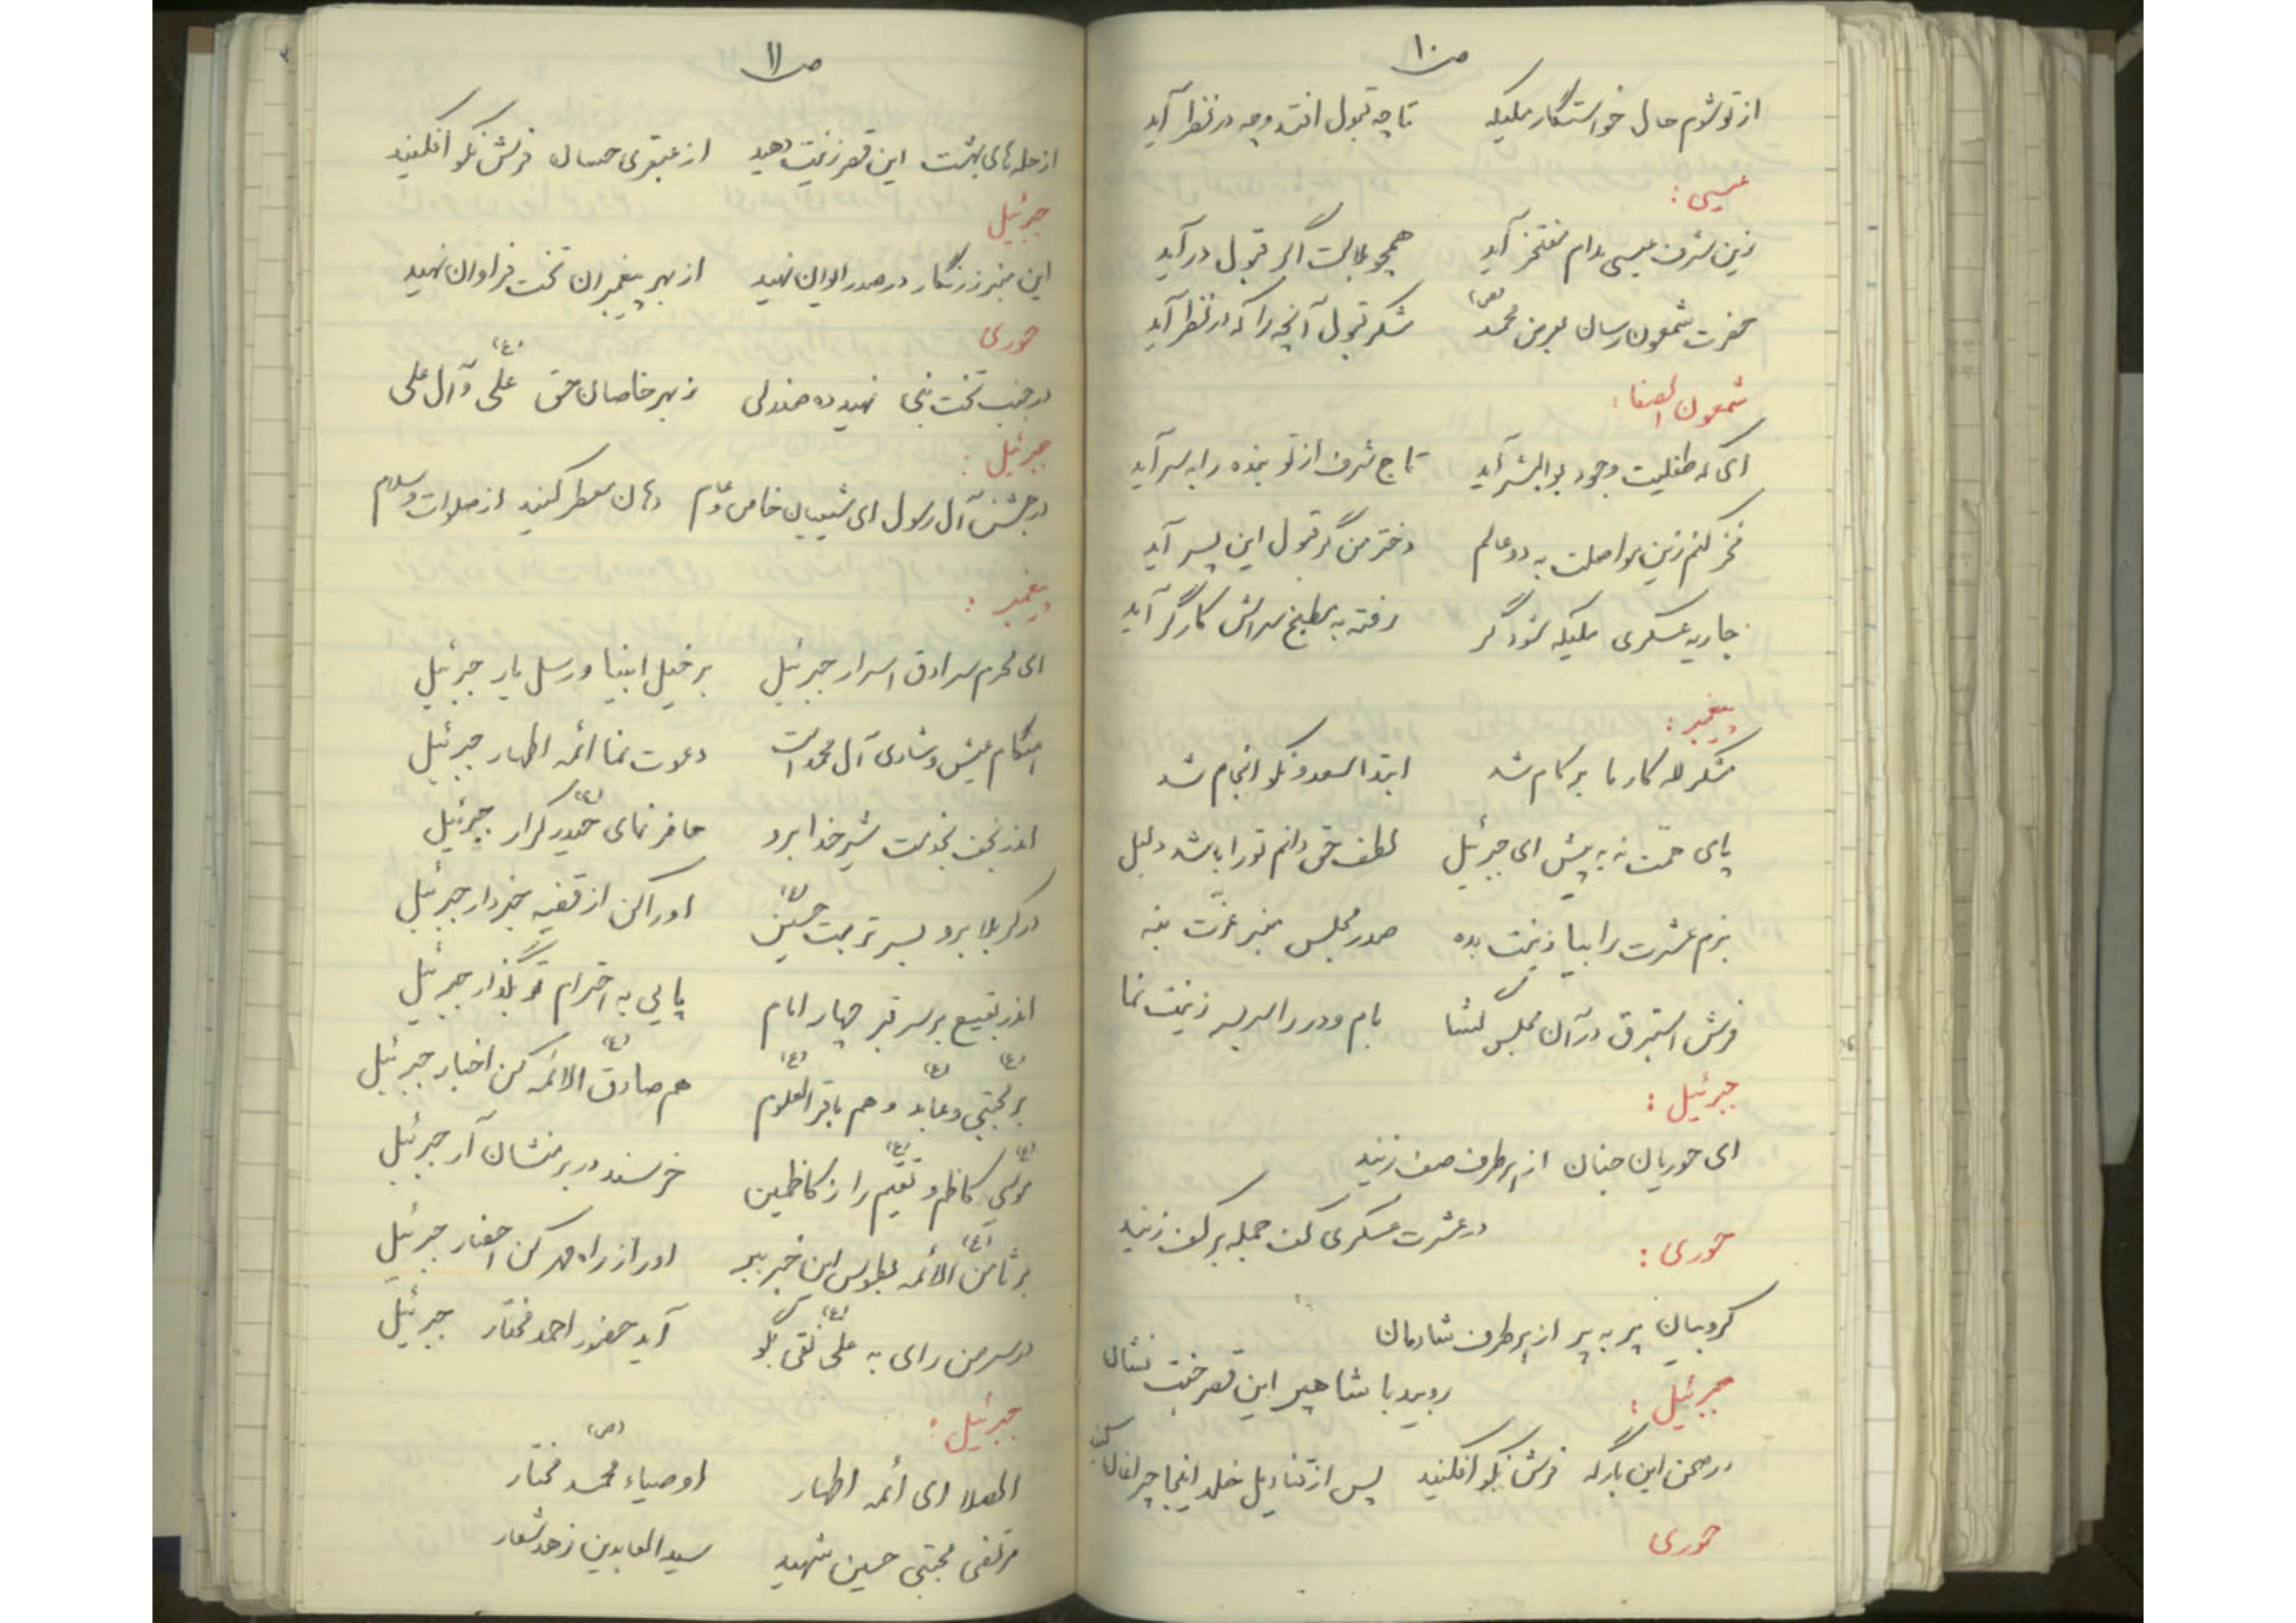 ص ۱۰
از تو شوم حال خواستگار ملیکه تا چه قبول افتد و چه در نظر آید
عیسی :
زین شرف عیسی مدام مفتخر آید همچو ملالت اگر قبول درآید
حضرت شمعون رسان بعرض محمد (ص) شکر قبول آنچه را که در نظر آید
شمعون الصفا :
ای که طفلیت وجود بوالبشر آید تاج شرف از تو بنده را به سر آید
فخر کنم زین مواصلت به دو عالم دختر من گر قبول این پسر آید
جاریه عسکری ملیکه شود گر رفته به مطبخ سراش کارگر آید
پیغمبر :
شکر لله کار ما بر کام شد ابتدا السعد و نکو انجام شد
پای همت نه به پیش ای جبرئیل لطف حق دانم تو را باشد دلیل
بزم عشرت را بیا زینت بده صدر مجلس منبر عزّت بنه
فرش استبرق در آن مجلس گشا بام و در را سر بسر زینت نما
جبرئیل :
ای حوریان جنان از هر طرف صف زنید
حوری :
در عشرت عسکری کف جمله بر کف زنید
کروبیان پر به پر از هر طرف شادمان
جبرئیل :
روبید با شاهپر این قصر جنت نشان
در صحن این بارگه فرش نکو افکنید پس از قنادیل خلد اینجا چراغان کنید
حوری
ص ۱۱
از حله های بهشت این قصر زینت دهید از عبقری حسان فرش نکو افکنید
جبرئیل
این منبر زرنگار در صدر ایوان نهید از بهر پیغمبران تخت فراوان نهید
حوری
در جنب تخت نبی نهید ده صندلی ز بهر خاصان حق علی (ع) و آل علی
جبرئیل :
در جشن آل رسول ای شیعیان خاص و عام دهان معطر کنید از صلوات و سلام
پیغمبر :
ای محرم سرادق اسرار جبرئیل بر خیل انبیا و رسل یار جبرئیل
هنگام عیش و شادی آل محمد است دعوت نما ائمه اطهار جبرئیل
اندر نجف بخدمت شیر خدا برو حاضر نمای حیدر (ع) کرار جبرئیل
در کربلا برو بسر تربت حسین (ع) او را کن از قضیه خبردار جبرئیل
اندر بقیع بر سر قبر چهار امام پایی به احترام تو بگذار جبرئیل
بر مجتبی (ع) و عابد (ع) و هم باقر العلوم (ع) هم صادق (ع) الائمه کن اخبار جبرئیل
موسی (ع) کاظم و تقیم (ع) را ز کاظمین خرسند در برمنشان آر جبرئیل
بر ثامن (ع) الائمه بطوس این خبر ببر او را ز راه مهر کن احضار جبرئیل
در سر من رای به علی نقی (ع) بگو آید حضور احمد مختار جبرئیل
جبرئیل :
الصلا ای ائمه اطهار اوصیاء محمد (ص) مختار
مرتضی مجتبی حسین شهید سید العابدین زهد شعار